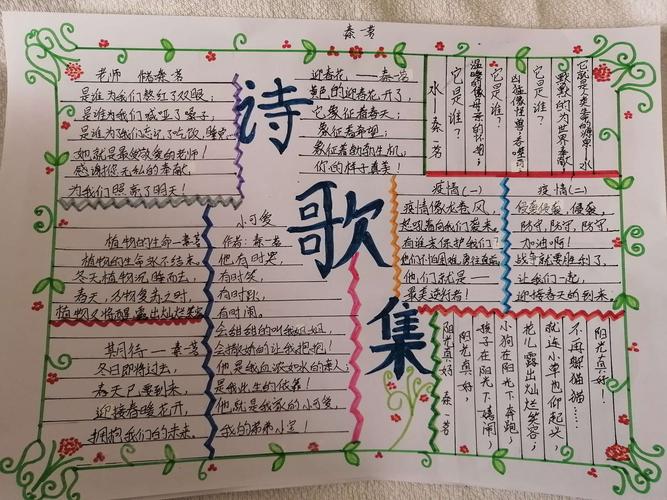 秦艺
诗歌集
老师 储秦艺
是谁为我们熬红了双眼;
是谁为我们喊哑了嗓子;
是谁为我们忘记了吃饭、睡觉
她就是最受敬爱的老师!
感谢你无私的奉献,
为我们照亮了明天!
迎春花,——秦艺
黄色的迎春花开了,
它象征着春天;
象征着希望;
象征着勃勃生机,
你的样子真美!
水—秦艺
它是谁?
温暖的像母亲的怀抱;
它是谁?
凶猛像怪兽;
它是谁?
默默的为世界奉献
它就是人类生命的源泉:水
植物的生命—秦艺
植物的生命永不结束。
冬天植物沉睡而去,
春天,万物复苏之时,
植物又将醒,露出灿烂笑容
期待—秦艺
冬日即将过去,
春天已要到来,
迎接春暖花开,
拥抱我们的未来。
小可爱
作者:秦艺
他,有时哭,
有时笑,
有时趴,
有时闹。
会甜甜的叫我姐姐,
会撒娇的让我抱抱!
他是我血浓如水的亲人;
是我此生的依靠!
他就是我家的小可爱,
我的弟弟小宝!
疫情(一)
疫情像龙卷风,
起吼着向我们袭来。
有谁来保护我们?
他们不怕困难,勇往直前
他们就是—
最美逆行者!
疫情(二)
侵袭侵袭,侵袭,
防守,防守,防守,
加油啊!
战争就要胜利了,
让我们一起,
迎接春天的到来。
阳光真好 秦艺
阳光真好,
孩子在阳光下嬉闹
小狗在阳光下奔跑;
花儿露出灿烂笑容;
就连小草也仰起头,
不再躲猫猫……
阳光真好!